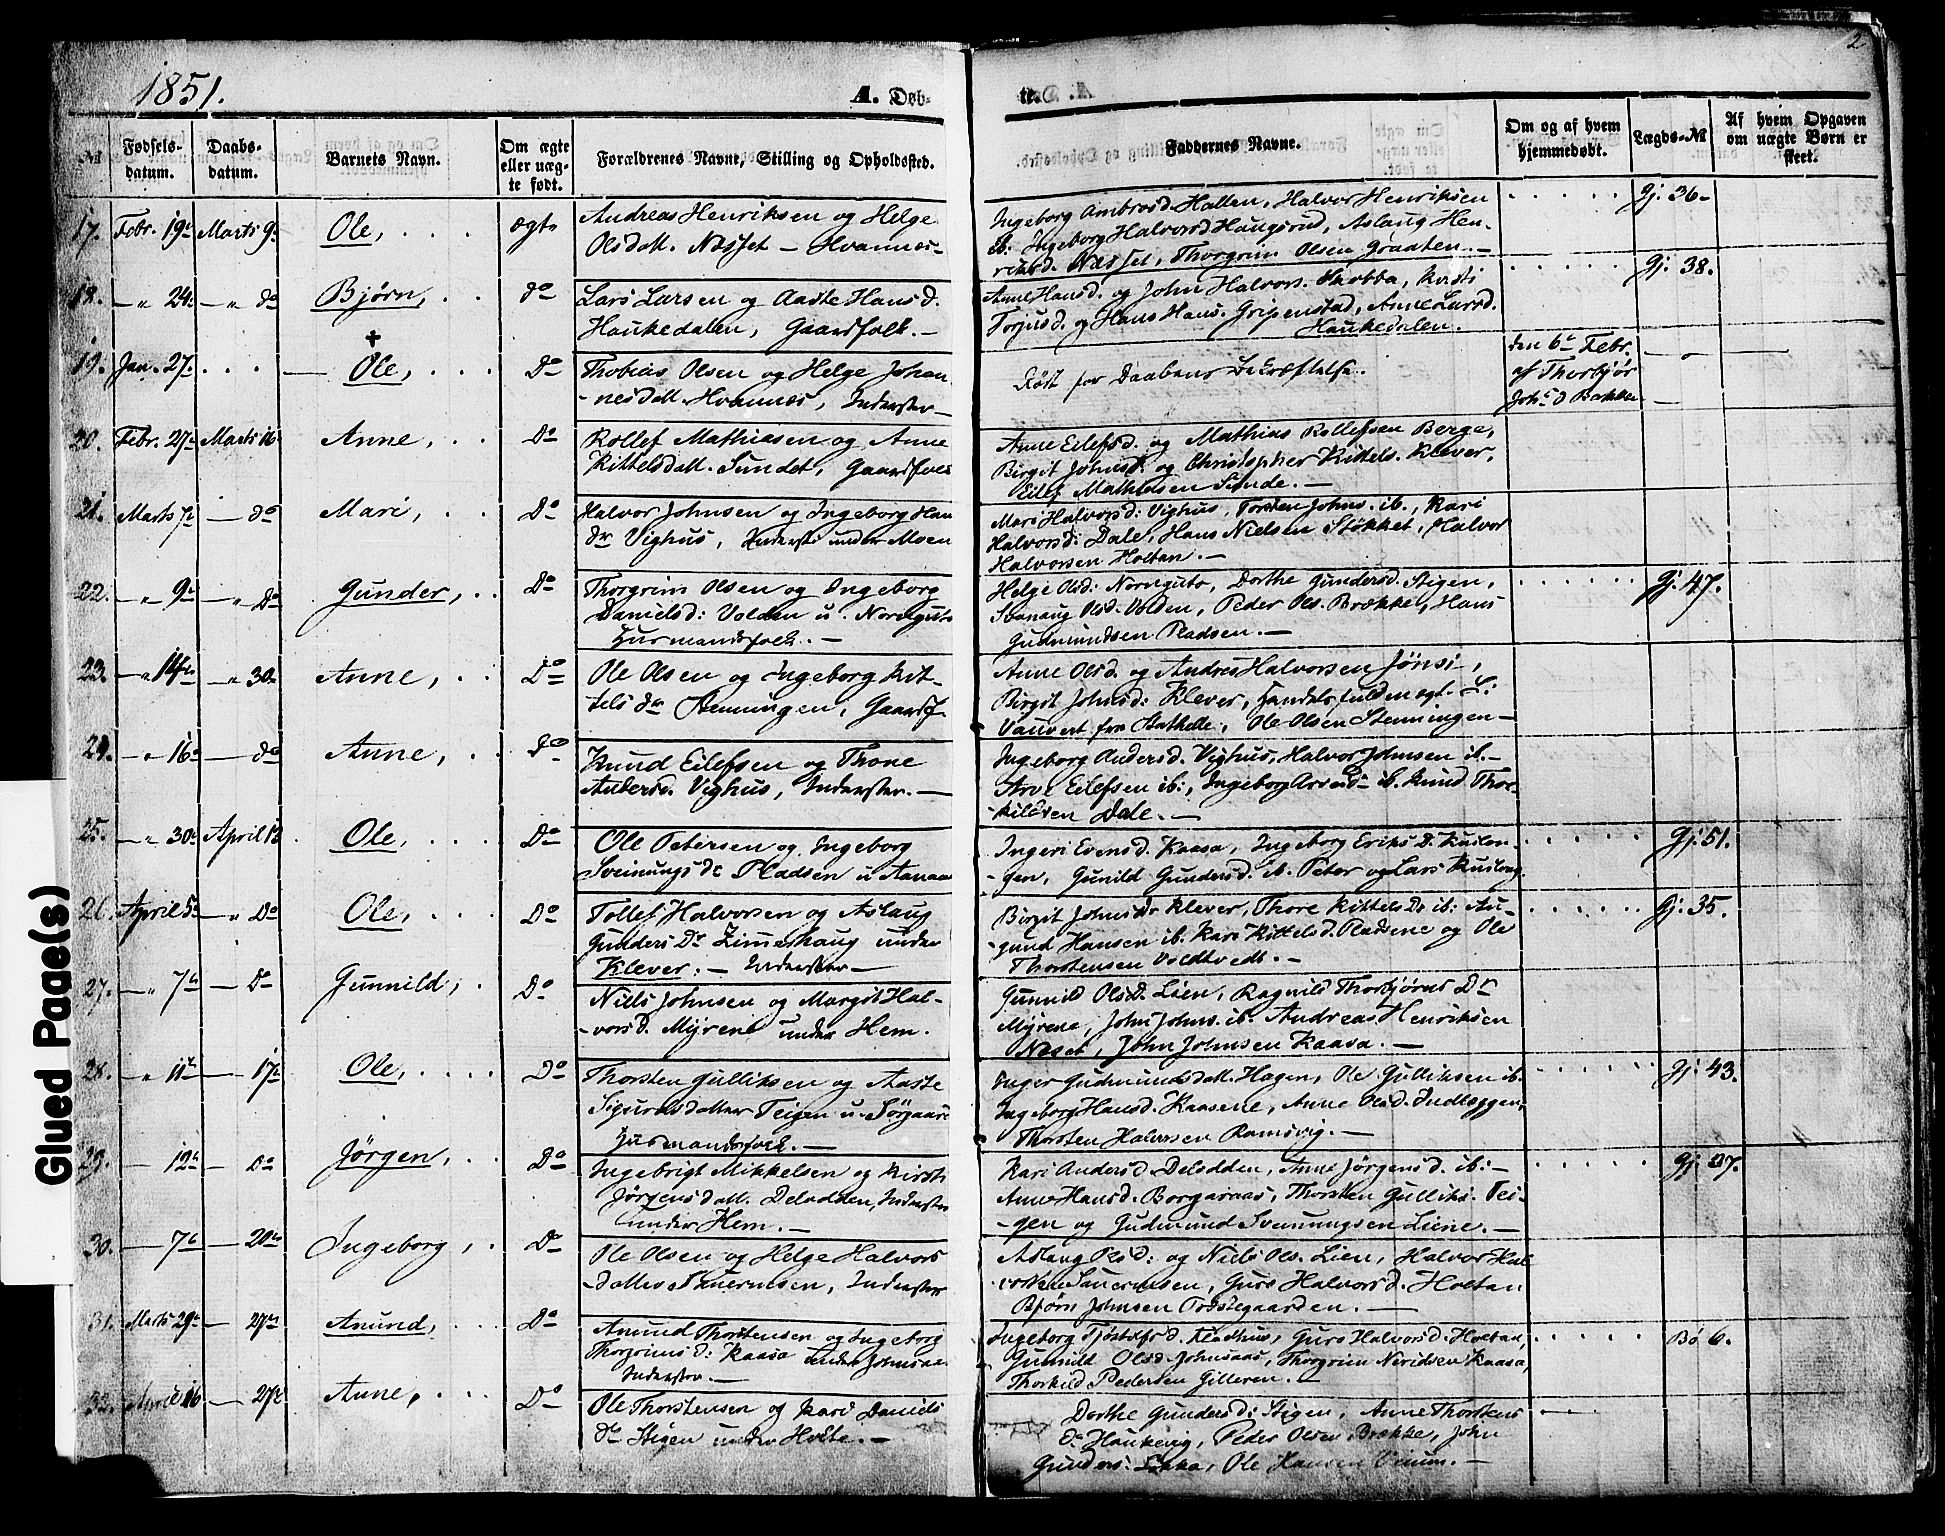 1851.
A. Døb-
te.
2
№
Fødsels-
datum.
Daabs-
datum.
Barnets Navn.
Om ægte
eller uæg-
te født.
Forældrenes Navne, Stilling og Opholdssted.
Faddernes Navne.
Om og af hvem
hjemmedøbt.
Lægds-№
Af hvem Opgaven
om uægte Børn er
skeet.
17. Febr. 19de Marts 9de Ole, ægte
Andreas Henriksen og Helge
Olsdatt. Næsset — Hvannæs
Ingeborg Ambrosd. Hallen, Halvor Henriksen
ib. Ingeborg Halvorsd Haugsrud, Aslaug Hen-
riksd. Næsset, Thorgrim Olsen Graaten.—
Gj. 36.
18. —„ 24. —„ do Bjørn, do
Lars Larsen og Aaste Hansd.
Haukedalen, Gaardfolk.—
Anne Hansd. og John Halvors. Skobba, Kirsti
Torjusd. og Hans Hans. Gripenstad, Anne Larsd.
Haukedalen.
Gj. 38.
19. Jan. 27. — Ole, Do
Thobias Olsen og Helge Johan-
nesdatt. Hvannæs, Inderster—
Røst for Daabens Bekræftelse.
den 6te Febr.
af Thorbjør
Johs D Bakken
20. Febr. 27de Marts 16 Anne, Do
Rollef Mathiesen og Anne
Kittelsdatt. Sundet, Gaardfolk
Anne Eilefsd. og Mathias Rollefsen Berge,
Birgit Johnsd. og Christopher Kittels. Klever,
Eilef Mathiesen Sunde.—
21. Marts 7de — do Mari, Do
Halvor Johnsen og Ingeborg Han
dr Vighus, Inderste under Moen
Mari Halvorsd: Vighus, Torsten Johns. ib., Kari
Halvorsd: Dale, Hans Nielsen Stokket, Halvor
Halvorsen Holtan.—
22. —„ 9de —„ Do Gunder, Do
Thorgrim Olsen og Ingeborg
Danielsd: Volden u. Nordgute
Huusmandsfolk.—
Helge Olsd: Nornguto, Dorthe Gundersd. Stigen,
Olsd. Volden, Peder Ols. Brække, Hans
Gudmundsen Pladsen.—
Gj. 47.
23. —„ 14de —„ 30. Anne, Do
Ole Olsen og Ingeborg Kit-
tels dr Stenningen, Gaardf.
Anne Olsd. og Andres Halvorsen Jønsi,
Birgit Johnsd: Klever,
Vauvert fra Stathelle, Ole Olsen Stenningen—
24. —„ 16de — do Anne, Do
Knud Eilefsen og Thone
Andersd. Vighus, Inderster.—
Ingeborg Andersd. Vighus, Halvor Johnsen ib.—
Arve Eilefsen ib:, Ingeborg ib. Knud Thor-
kildsen Dale.—
25. —„ 30te April 13 Ole, Do
Ole Petersen og Ingeborg
Sveinungs dr Pladsen u Aanaa
Ingeri Evensd. Kaasa, Ingeborg Eriks D. Kuslon-
gen, Gunild Gundersd. ib. Peter og Lars Kuslong.
Gj. 51.
26. April 5te —„ Do Ole, Do
Tollef Halvorsen og Aslaug
Gunders Dr Zimmerhaug under
Klever:— Inderster—
Birgit Johns dr Klever, Thore Kittels Dr ib: Au-
gund Hansen ib. Kari Kittelsd. Pladsene og Ole
Thorstensen Voldtvedt.—
Gj. 35.
27. —„ 7de — Do Gunnild, Do
Niels Johnsen og Margit Hal-
vorsd. Myrene under Hem.
Gunnild Olsd. Lien, Ragnild Thorbjørns Dr
Myrene, John Johns. ib. Andreas Henriksen
Næset, John Johnsen Kaasa.—
28. —„ 11te — 17de Ole, Do
Thorsten Gulliksen og Aaste
Sigurdsdatter Teigen u. Sørgaar
Huusmandsfolk.—
Inger Gudmundsdatt. Hagen, Ole Gulliksen ib.
Ingeborg Hansd. Kaasene, Anne Olsd. Indlæggen,
Thorsten Halvorsen Ramsvig.—
Gj. 43.
29. — 12te — Do Jørgen, Do
Ingebrigt Mikkelsen og Kirsti
Jørgensdatt. Delodden, Inderster
under Hem.—
Kari Andersd. Delodden, Anne Jørgensd. ib:—
Anne Hansd. Borgaraas, Thorsten Gulliks. Tei-
gen og Gudmund Sveinungsen Liene.—
Gj. 37.
30. — 7de — 20de Ingeborg, Do
Ole Olsen og Helge Halvors
datter Sauermsen, Inderster
Aslaug Olsd: og Niels Ols. Lien, Halvor Hal-
vorsen Sauermsen, Guro Halvorsd. Holtan
Bjørn Johnsen Præstegaarden.—
31. Marts 29de — 27de Anund, Do
Anund Thorstensen og Ingeborg
Thorgrimsd: Kaasa under Johnsaas
Inderster.—
Ingeborg Tjøstolfsd. Kladhus, Guro Halvorsd. Holtan,
Gunnild Olsd. Johnsaas, Thorgrim Neridsen Kaasa,
Thorkild Pedersen Gilleren.—
Bø 6.
32. April 16 — 27de Anne, Do
Ole Thorstensen og Kari Daniels
dr Stigen under Holte.—
Dorthe Gundersd: Stigen, Anne Thorstens
dr Haukevig, Peder Olsen Brække, John
Gunders: Løkka, Ole Hansen Vinum.—
Glued Page(s)